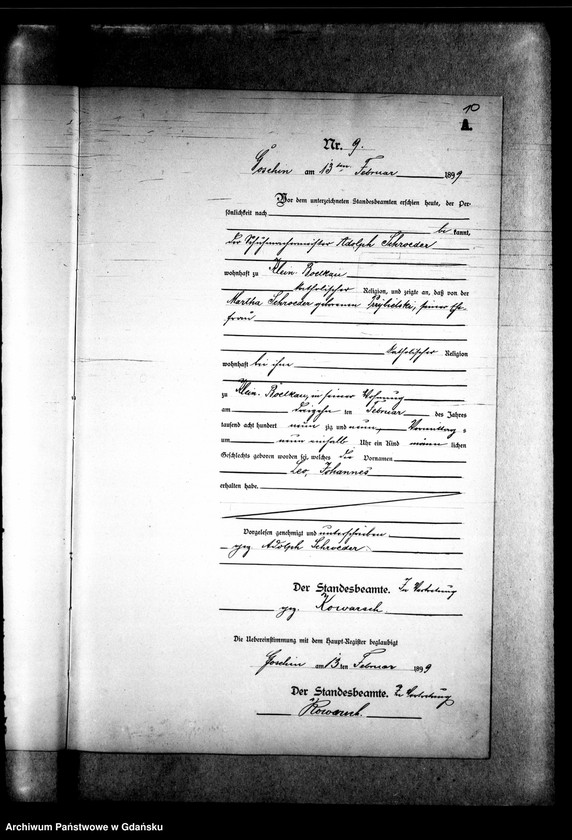 10
A.
Nr. 9.
Goschin am 13ten Februar 1899
Vor dem unterzeichneten Standesbeamten erschien heute, der Per-
sönlichkeit nach
be kannt,
der Schuhmachermeister Adolph Schroeder
wohnhaft zu Klein Boelkau
katholischer Religion, und zeigte an, daß von der
Martha Schroeder geborenen seiner Ehe-
frau
katholischer Religion
wohnhaft bei ihm
zu Klein-Boelkau, in seiner Wohnung
am ten Februar des Jahres
tausend acht hundert neun zig und neun, Vormittag s
um neun einhalb Uhr ein Kind männ lichen
Geschlechts geboren worden sei, welches die Vornamen
Leo, Johannes
erhalten habe.
Vorgelesen genehmigt und unterschrieben
gez. Adolph Schroeder
Der Standesbeamte. In Vertretung
gez. Kowarsch
Die Uebereinstimmung mit dem Haupt-Register beglaubigt
Goschin am 13 ten Februar 1899
Der Standesbeamte. In Vertretung
Kowarsch.
Archiwum Państwowe w Gdańsku